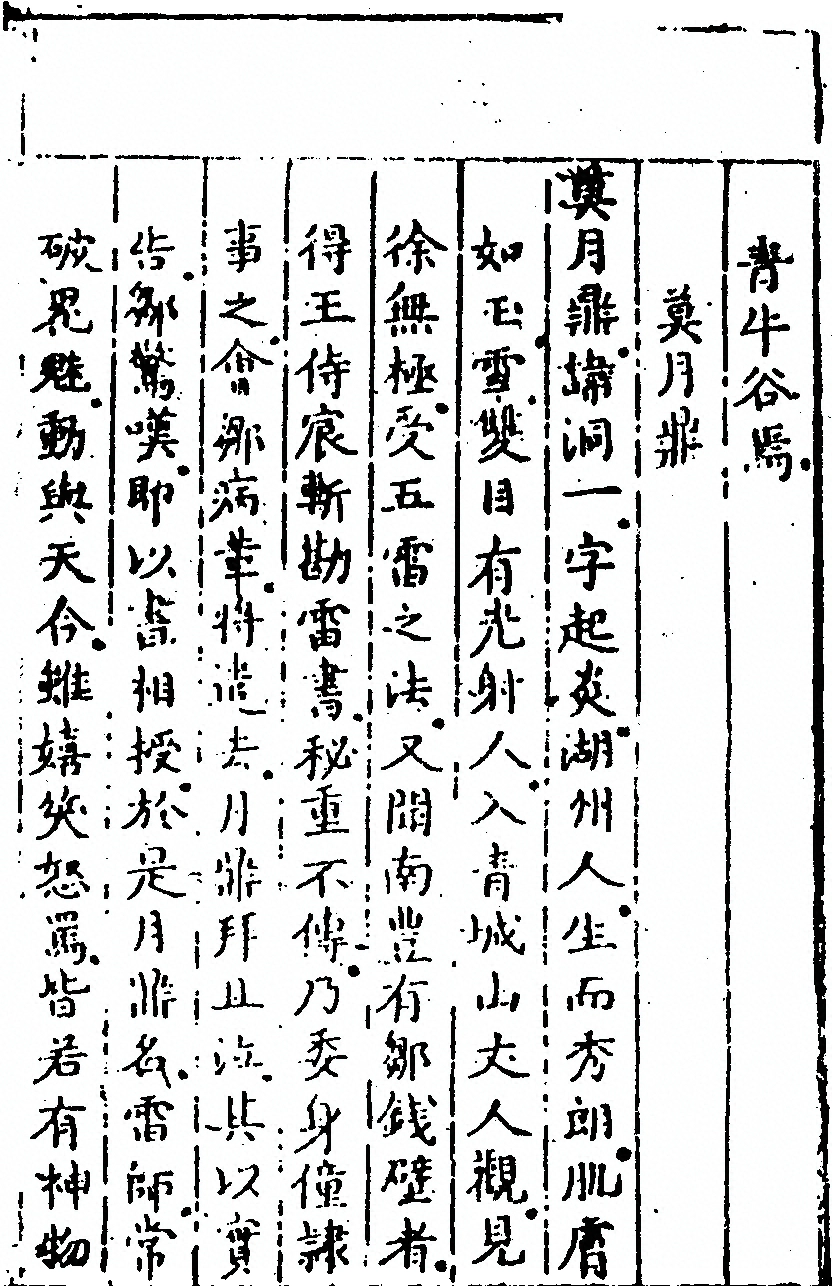 青牛谷焉
莫月鼎
莫月鼎諱洞一字起炎湖州人生而秀朗肌膚
如玉雪雙目有光射人入青城山丈人觀見
徐無極受五雷之法又聞南豐有鄒鐵壁者
得王侍宸斬勘雷書秘重不傳乃委身僮隸
事之會鄒病革將遣去月鼎拜且泣具以實
告鄒驚嘆即以書相授於是月鼎名雷師常
破鬼魅動與天合雖嬉笑怒罵皆若有神物